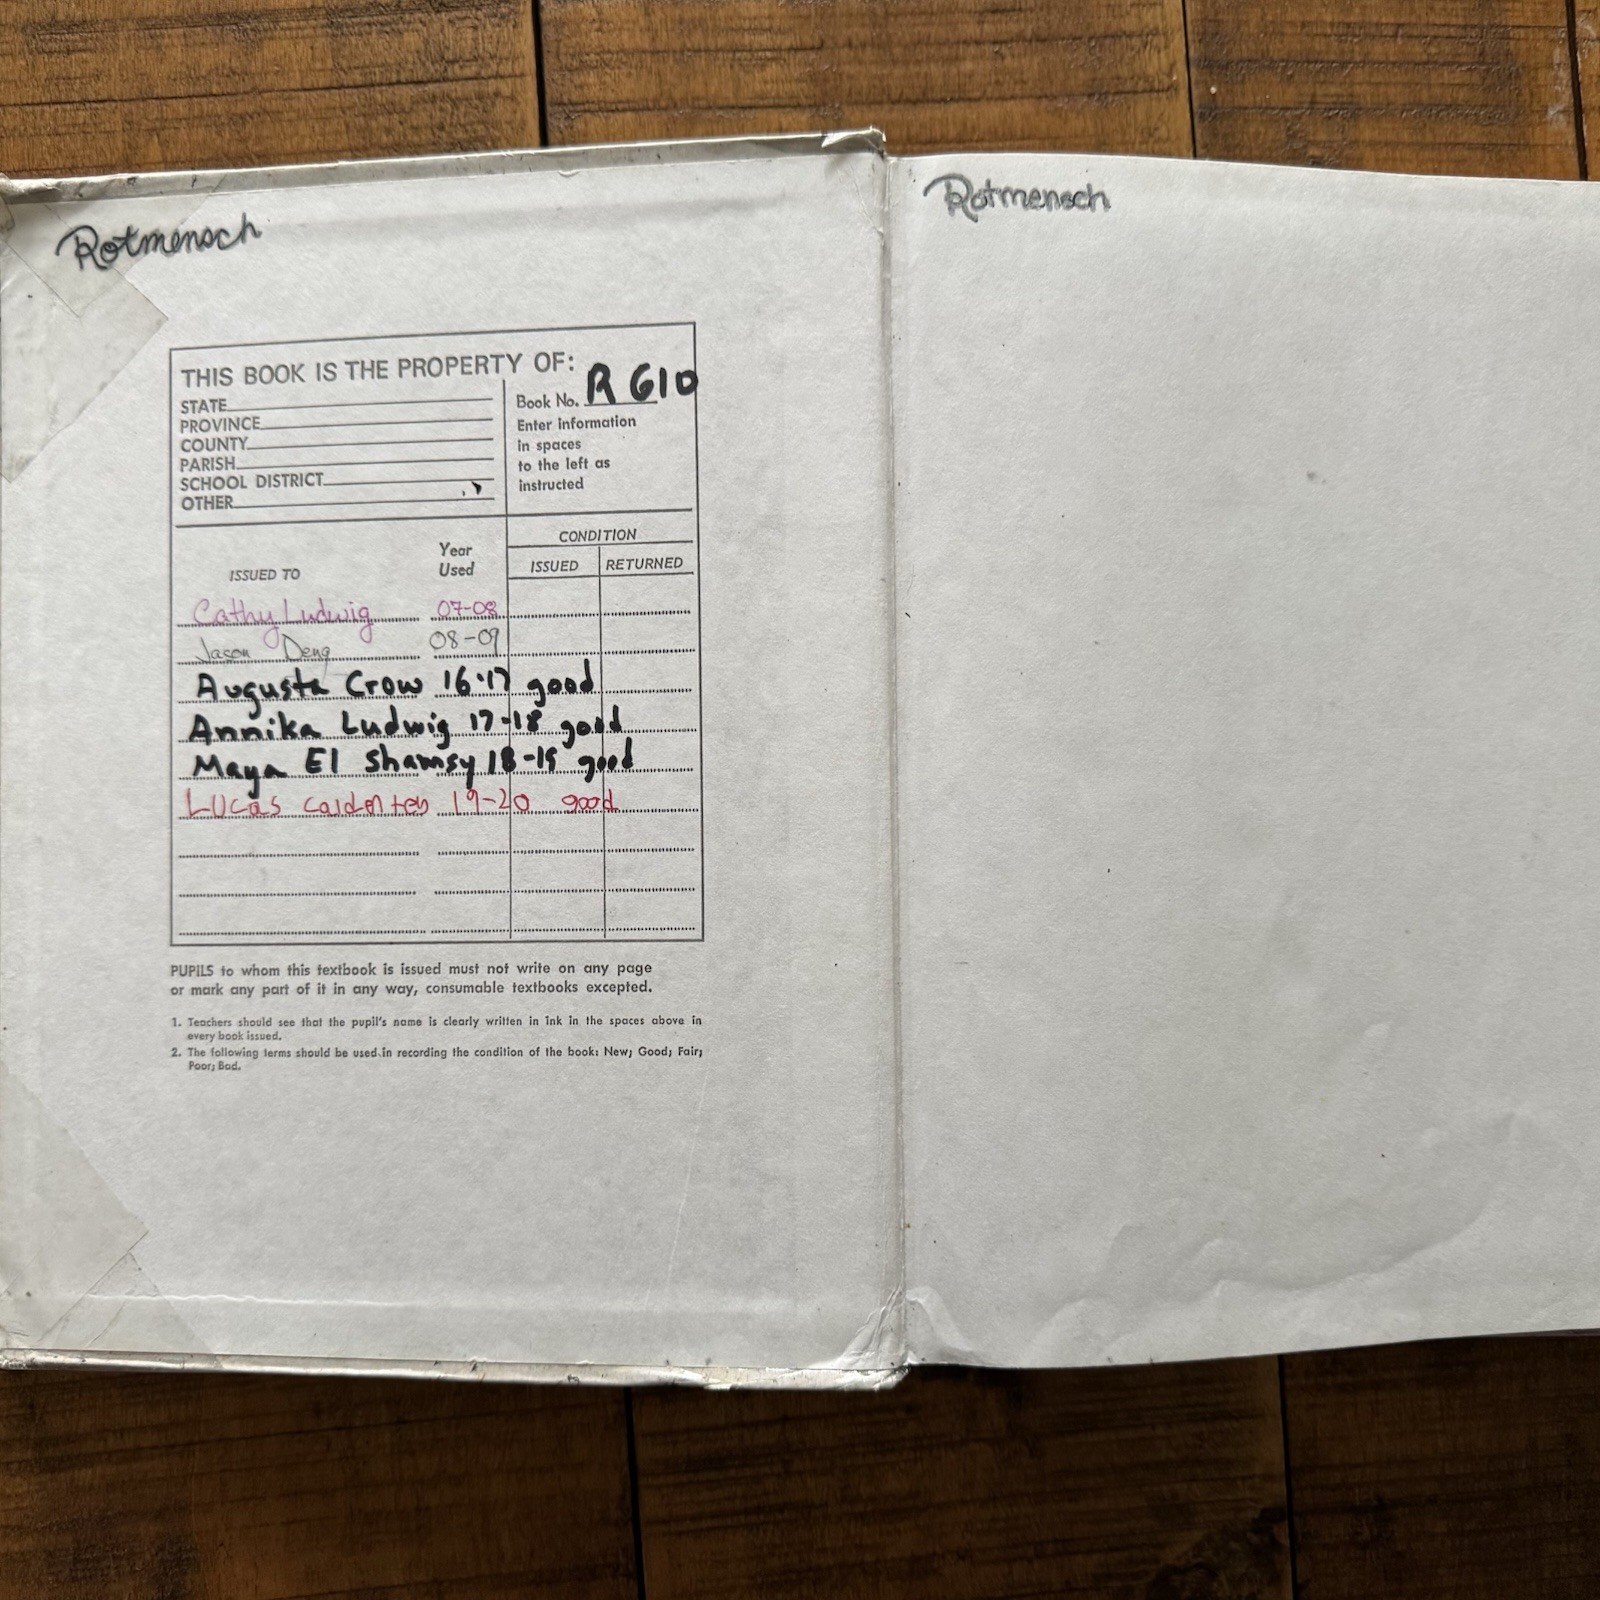 Rotmensch
Rotmensch
THIS BOOK IS THE PROPERTY OF:
STATE
PROVINCE
COUNTY
PARISH
SCHOOL DISTRICT
OTHER
Book No. R G10
Enter information
in spaces
to the left as
instructed
ISSUED TO
Year
Used
CONDITION
ISSUED RETURNED
Cathy Ludwig 07-08
Jason Deng 08-09
Augusta Crow 16-17 good
Annika Ludwig 17-18 good
Maya El Shamsy 18-19 good
Lucas 19-20 good
PUPILS to whom this textbook is issued must not write on any page
or mark any part of it in any way, consumable textbooks excepted.
1. Teachers should see that the pupil's name is clearly written in ink in the spaces above in
every book issued.
2. The following terms should be used in recording the condition of the book: New; Good; Fair;
Poor; Bad.